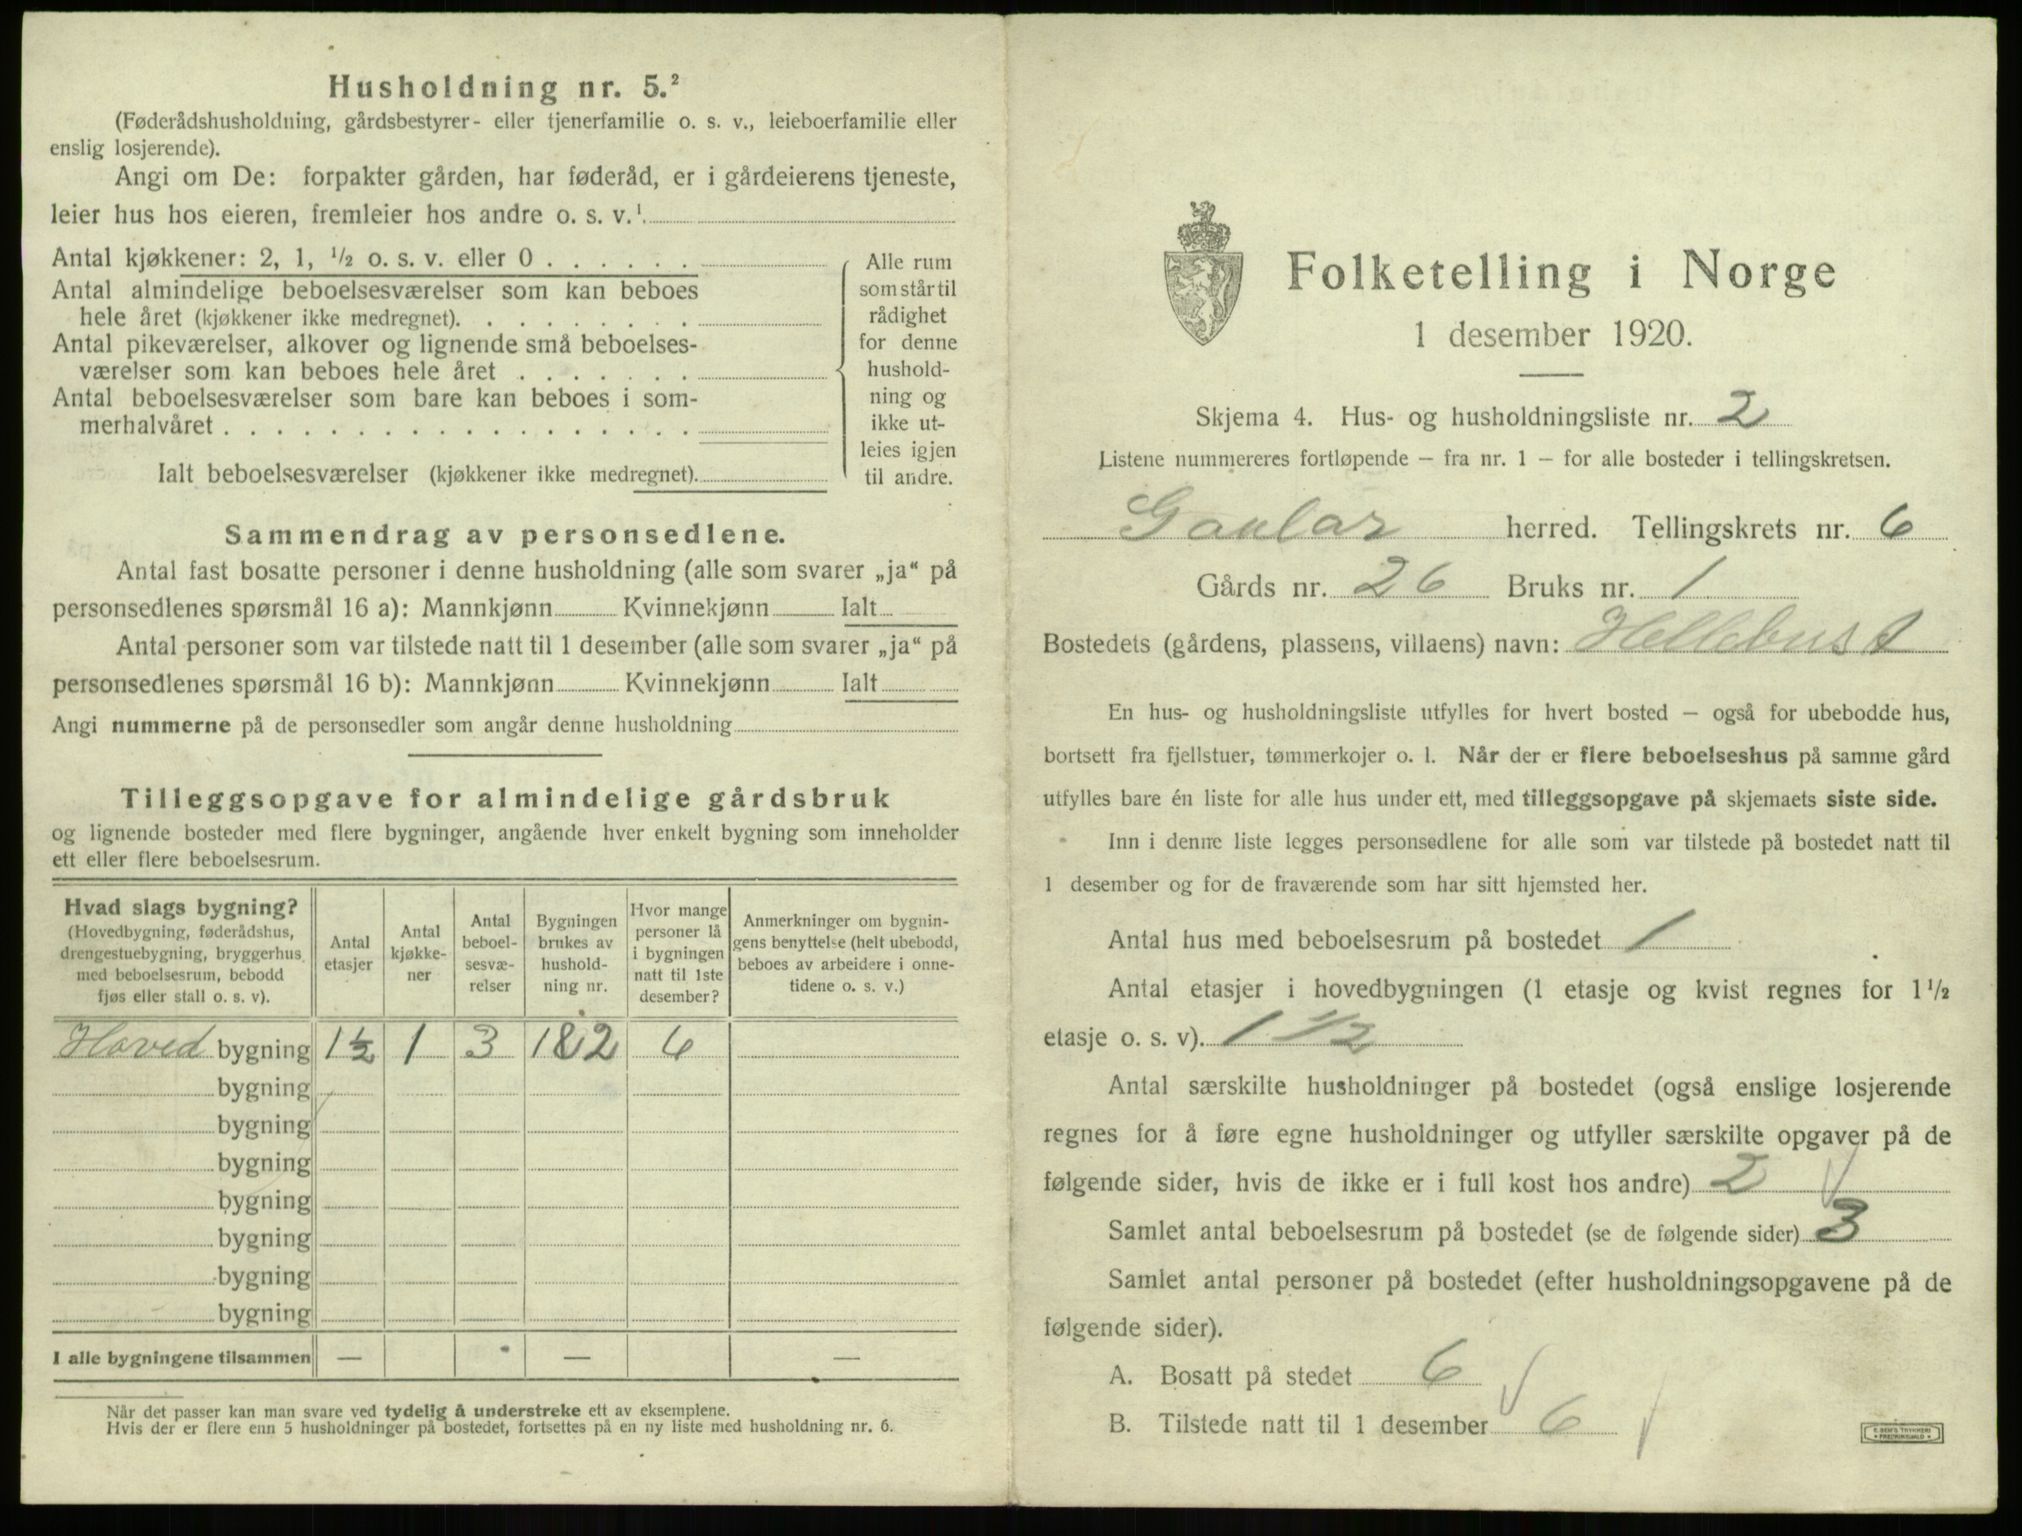 Husholdning nr. 5.²
(Føderådshusholdning, gårdsbestyrer- eller tjenerfamilie o. s. v., leieboerfamilie eller
enslig losjerende).
Angi om De: forpakter gården, har føderåd, er i gårdeierens tjeneste,
leier hus hos eieren, fremleier hos andre o. s. v.¹
Antal kjøkkener: 2, 1, ½ o. s. v. eller 0 . . . . . .
Antal almindelige beboelsesværelser som kan beboes
hele året (kjøkkener ikke medregnet). . . . . . . . .
Antal pikeværelser, alkover og lignende små beboelses-
værelser som kan beboes hele året . . . . . . .
Antal beboelsesværelser som bare kan beboes i som-
merhalvåret . . . . . . . . . . . . . . . . . .
Ialt beboelsesværelser (kjøkkener ikke medregnet).
Alle rum
som står til
rådighet
for denne
hushold-
ning og
ikke ut-
leies igjen
til andre.
Sammendrag av personsedlene.
Antal fast bosatte personer i denne husholdning (alle som svarer „ja“ på
personsedlenes spørsmål 16 a): Mannkjønn Kvinnekjønn Ialt
Antal personer som var tilstede natt til 1 desember (alle som svarer „ja“ på
personsedlenes spørsmål 16 b): Mannkjønn Kvinnekjønn Ialt
Angi nummerne på de personsedler som angår denne husholdning
Tilleggsopgave for almindelige gårdsbruk
og lignende bosteder med flere bygninger, angående hver enkelt bygning som inneholder
ett eller flere beboelsesrum.
Hvad slags bygning?
(Hovedbygning, føderådshus,
drengestuebygning, bryggerhus
med beboelsesrum, bebodd
fjøs eller stall o. s. v).
Antal
etasjer
Antal
kjøkke-
ner
Antal
beboel-
sesvæ-
relser
Bygningen
brukes av
hushold-
ning nr.
Hvor mange
personer lå
i bygningen
natt til 1ste
desember?
Anmerkninger om bygnin-
gens benyttelse (helt ubebodd,
beboes av arbeidere i onne-
tidene o. s. v.)
Hoved bygning 1½ 1 3 1&2 6
bygning
bygning
bygning
bygning
bygning
bygning
bygning
I alle bygningene tilsammen — — —
Når det passer kan man svare ved tydelig å understreke ett av eksemplene.
Hvis der er flere enn 5 husholdninger på bostedet, fortsettes på en ny liste med husholdning nr. 6.
Folketelling i Norge
1 desember 1920.
Skjema 4. Hus- og husholdningsliste nr. 2
Listene nummereres fortløpende — fra nr. 1 — for alle bosteder i tellingskretsen.
Gaular herred. Tellingskrets nr. 6
Gårds nr. 26 Bruks nr. 1
Bostedets (gårdens, plassens, villaens) navn: Hellebust
En hus- og husholdningsliste utfylles for hvert bosted — også for ubebodde hus,
bortsett fra fjellstuer, tømmerkojer o. l. Når der er flere beboelseshus på samme gård
utfylles bare én liste for alle hus under ett, med tilleggsopgave på skjemaets siste side.
Inn i denne liste legges personsedlene for alle som var tilstede på bostedet natt til
1 desember og for de fraværende som har sitt hjemsted her.
Antal hus med beboelsesrum på bostedet 1
Antal etasjer i hovedbygningen (1 etasje og kvist regnes for 1½
etasje o. s. v). 1 ½
Antal særskilte husholdninger på bostedet (også enslige losjerende
regnes for å føre egne husholdninger og utfyller særskilte opgaver på de
følgende sider, hvis de ikke er i full kost hos andre) 2
Samlet antal beboelsesrum på bostedet (se de følgende sider) 3
Samlet antal personer på bostedet (efter husholdningsopgavene på de
følgende sider).
A. Bosatt på stedet 6
B. Tilstede natt til 1 desember 6